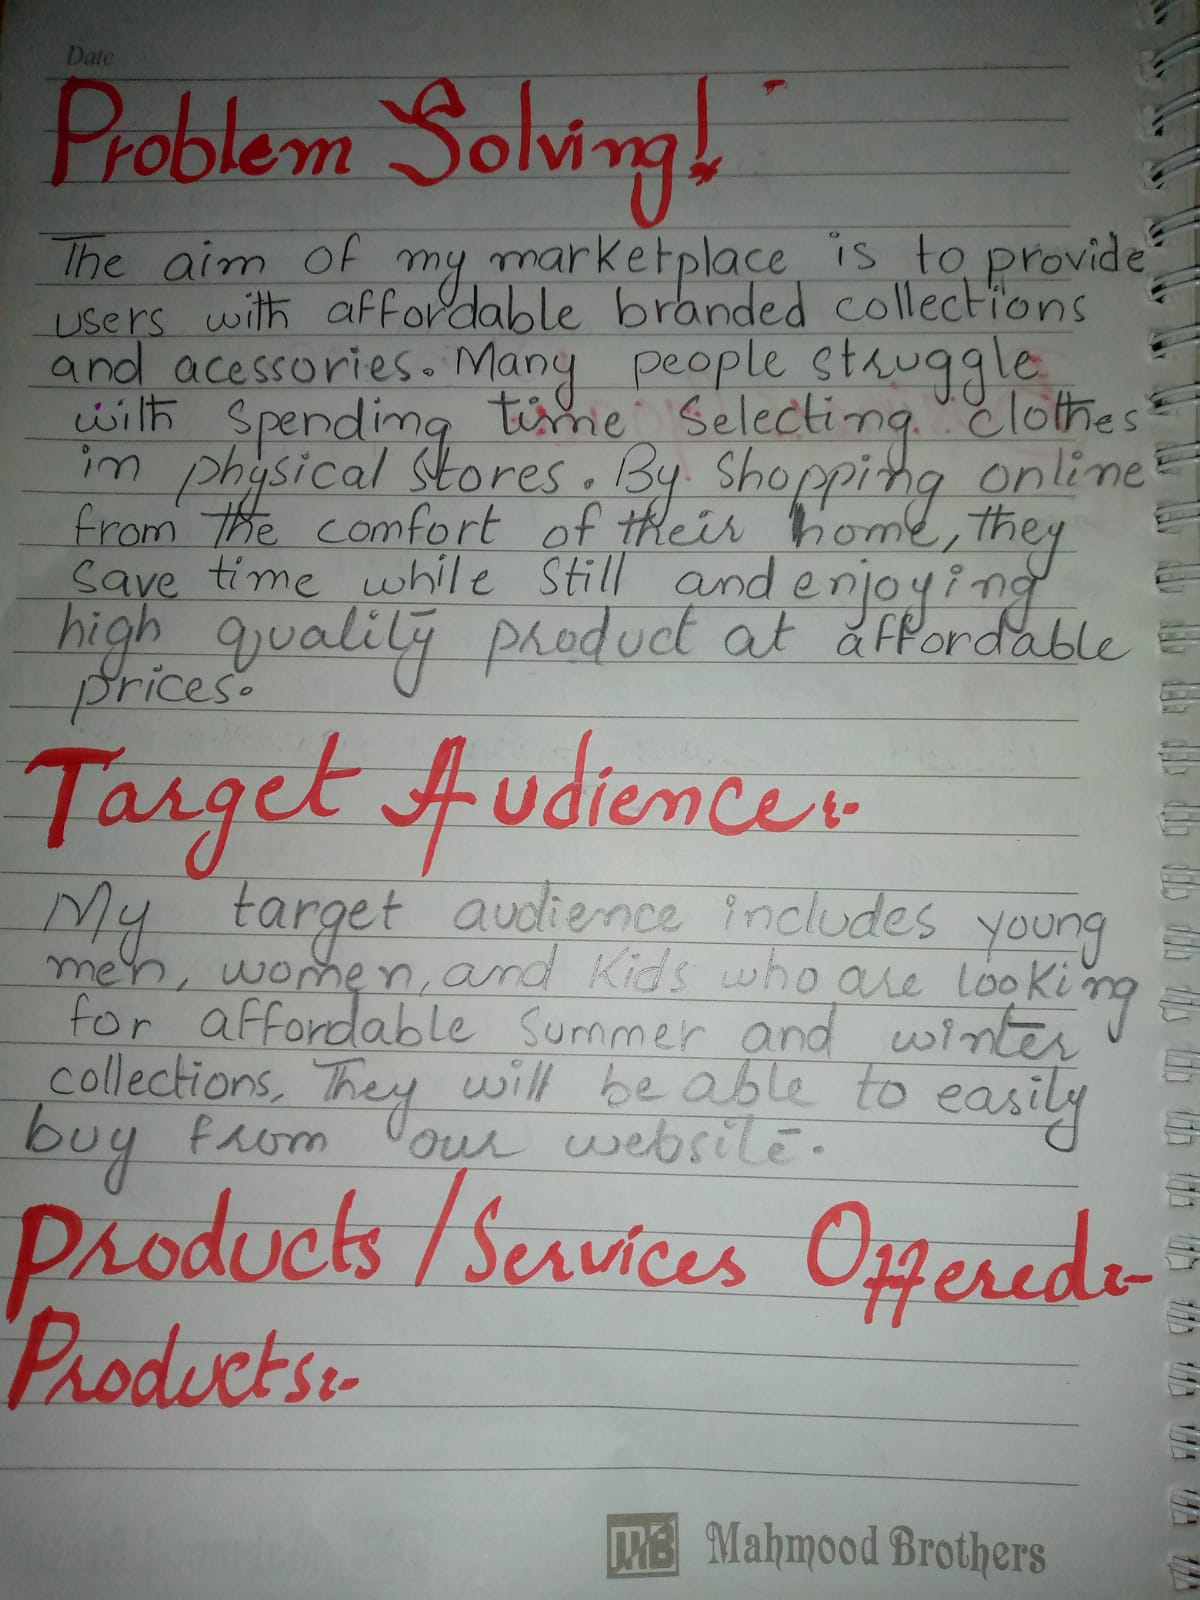 Date
Problem Solving!
The aim of my marketplace is to provide
users with affordable branded collections
and acessories. Many people struggle
with spending time selecting clothes
in physical stores. By shopping online
from the comfort of their home, they
save time while still and enjoying
high quality product at affordable
prices.
Target Audience:-
My target audience includes young
men, women, and kids who are looking
for affordable summer and winter
collections. They will be able to easily
buy from our website.
Products/Services Offered:-
Products:-
MB Mahmood Brothers